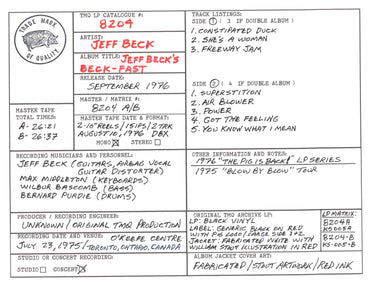 TRADE MARK
OF QUALITY
TMQ LP CATALOGUE #:
8204
ARTIST:
JEFF BECK
ALBUM TITLE: JEFF BECK'S
BECK-FAST
RELEASE DATE:
SEPTEMBER 1976
MASTER / MATRIX #:
8204 A/B
MASTER TAPE
TOTAL TIMES:
A- 26:21
B- 26:37
MASTER TAPE DATE & FORMAT:
2-10" REELS / 15IPS / 2TRK
AUGUST 10, 1976 DBX
MONO STEREO
TRACK LISTINGS:
SIDE 1 ( 3 IF DOUBLE ALBUM )
1. CONSTIPATED DUCK
2. SHE'S A WOMAN
3. FREEWAY JAM
SIDE 2 ( 4 IF DOUBLE ALBUM )
1. SUPERSTITION
2. AIR BLOWER
3. POWER
4. GOT THE FEELING
5. YOU KNOW WHAT I MEAN
RECORDING MUSICIANS AND PERSONNEL:
JEFF BECK (GUITARS, AIRBAG VOCAL
GUITAR DISTORTER)
MAX MIDDLETON (KEYBOARDS)
WILBUR BASCOMB (BASS)
BERNARD PURDIE (DRUMS)
OTHER INFORMATION AND NOTES:
1976 "THE PIG IS BACK!" LP SERIES
1975 "BLOW BY BLOW" TOUR
PRODUCER / RECORDING ENGINEER:
UNKNOWN / ORIGINAL TMQ PRODUCTION
RECORDING DATE AND VENUE: O'KEEFE CENTRE
JULY 23, 1975 / TORONTO, ONTARIO, CANADA
STUDIO OR CONCERT RECORDING:
STUDIO CONCERT
ORIGINAL TMQ ARCHIVE LP:
LP: BLACK VINYL
LABEL: GENERIC BLACK ON RED
WITH PIG LOGO / LARGE SIDE 1+2
JACKET: FABRICATED WHITE WITH
WILLIAM STOUT ILLUSTRATION IN RED
LP MATRIX:
8204A
KS005A
8204-B
KS-005-B
ALBUM JACKET COVER ART:
FABRICATED / STOUT ARTWORK / RED INK